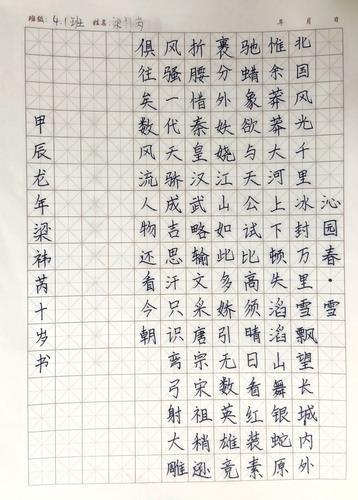 班级: 4.1班 姓名: 梁祎芮 年 月 日
沁园春·雪
北国风光千里冰封万里雪飘望长城内外
惟余莽莽大河上下顿失滔滔山舞银蛇原
驰蜡象欲与天公试比高须晴日看红装素
裹分外妖娆江山如此多娇引无数英雄竞
折腰惜秦皇汉武略输文采唐宗宋祖稍逊
风骚一代天骄成吉思汗只识弯弓射大雕
俱往矣数风流人物还看今朝
甲辰龙年梁祎芮十岁书